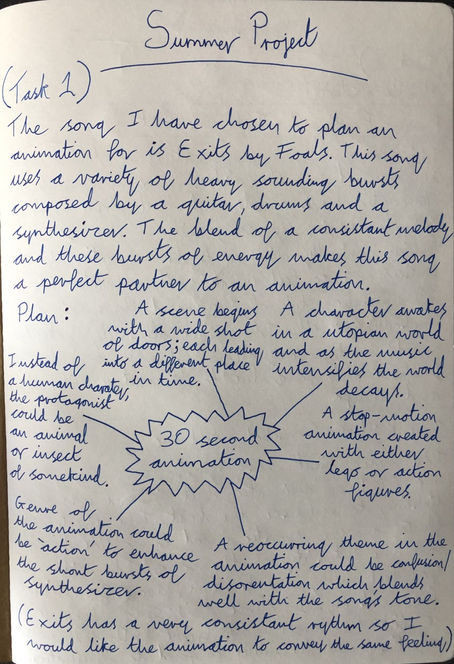 Summer Project
(Task 1)
The song I have chosen to plan an
animation for is Exits by Foals. This song
uses a variety of heavy sounding bursts
composed by a guitar, drums and a
synthesizer. The blend of a consistant melody
and these bursts of energy makes this song
a perfect partner to an animation.
Plan:
A scene begins
with a wide shot
of doors; each leading
into a different place
in time.
A character awakes
in a utopian world
and as the music
intensifies the world
decays.
Instead of
a human charater,
the protagonist
could be
an animal
or insect
of somekind.
30 second
animation
A stop-motion
animation created
with either
lego or action
figures.
Genre of
the animation could
be 'action' to enhance
the short bursts of
synthesizer.
A reoccurring theme in the
animation could be confusion/
disorentation which blends
well with the song's tone.
(Exits has a very consistant rythm so I
would like the animation to convey the same feeling.)